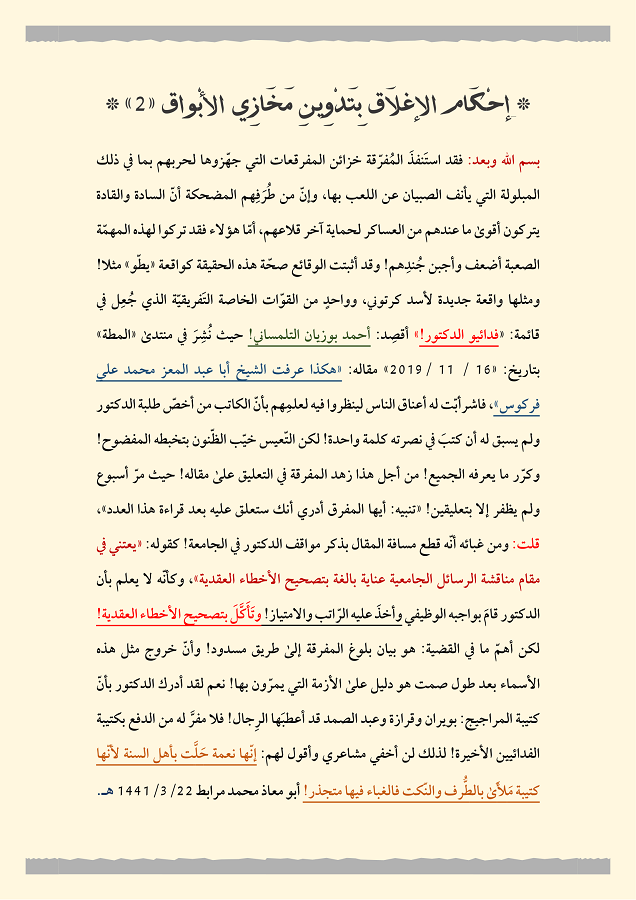 ❈ إحْكَام الإغلَاق بِتَدْوِينِ مَخَازِي الأَبْوَاق «2» ❈
بسم الله وبعد: فقد استَنفذَ المُفرّقة خزائن المفرقعات التي جهّزوها لحربهم بما في ذلك
المبلولة التي يأنف الصبيان عن اللعب بها، وإنّ من طُرَفِهم المضحكة أنّ السادة والقادة
يتركون أقوىٰ ما عندهم من العساكر لحماية آخر قلاعهم، أمّا هؤلاء فقد تركوا لهذه المهمّة
الصعبة أضعف وأجبن جُندِهم! وقد أثبتت الوقائع صحّة هذه الحقيقة كواقعة «يطّو» مثلا!
ومثلها واقعة جديدة لأسد كرتوني، وواحدٍ من القوّات الخاصة التَفريقيّة الذي جُعِل في
قائمة: «فدائيو الدكتور!» أقصِد: أحمد بوزيان التلمساني! حيث نُشِرَ في منتدىٰ «المطة»
بتاريخ: «16 / 11 / 2019» مقاله: «هكذا عرفت الشيخ أبا عبد المعز محمد علي
فركوس»، فاشرأبّت له أعناق الناس لينظروا فيه لعلمِهم بأنّ الكاتب من أخصّ طلبة الدكتور
ولم يسبق له أن كتبَ في نصرته كلمة واحدة! لكن التّعيس خيّب الظّنون بتخبطه المفضوح!
وكرّر ما يعرفه الجميع! من أجل هذا زهد المفرقة في التعليق علىٰ مقاله! حيث مرّ أسبوع
ولم يظفر إلا بتعليقين! «تنبيه: أيها المفرق أدري أنك ستعلق عليه بعد قراءة هذا العدد»،
قلت: ومن غبائه أنّه قطع مسافة المقال بذكر مواقف الدكتور في الجامعة! كقوله: «يعتني في
مقام مناقشة الرسائل الجامعية عناية بالغة بتصحيح الأخطاء العقدية»، وكأنّه لا يعلم بأن
الدكتور قامَ بواجبه الوظيفي وأخذَ عليه الرّاتب والامتياز! وتَأَكَّلَ بتصحيح الأخطاء العقدية!
لكن أهمّ ما في القضية: هو بيان بلوغ المفرقة إلىٰ طريق مسدود! وأنّ خروج مثل هذه
الأسماء بعد طول صمت هو دليل علىٰ الأزمة التي يمرّون بها! نعم لقد أدرك الدكتور بأنّ
كتيبة المراجيح: بويران وقرازة وعبد الصمد قد أعطبَها الرِجال! فلا مفرَّ له من الدفع بكتيبة
الفدائيين الأخيرة! لذلك لن أخفي مشاعري وأقول لهم: إنّها نعمة حَلَّت بأهل السنة لأنّها
كتيبة مَلأَىٰ بالطُّرف والنّكت فالغباء فيها متجذر! أبو معاذ محمد مرابط 22/ 3/ 1441 هـ.